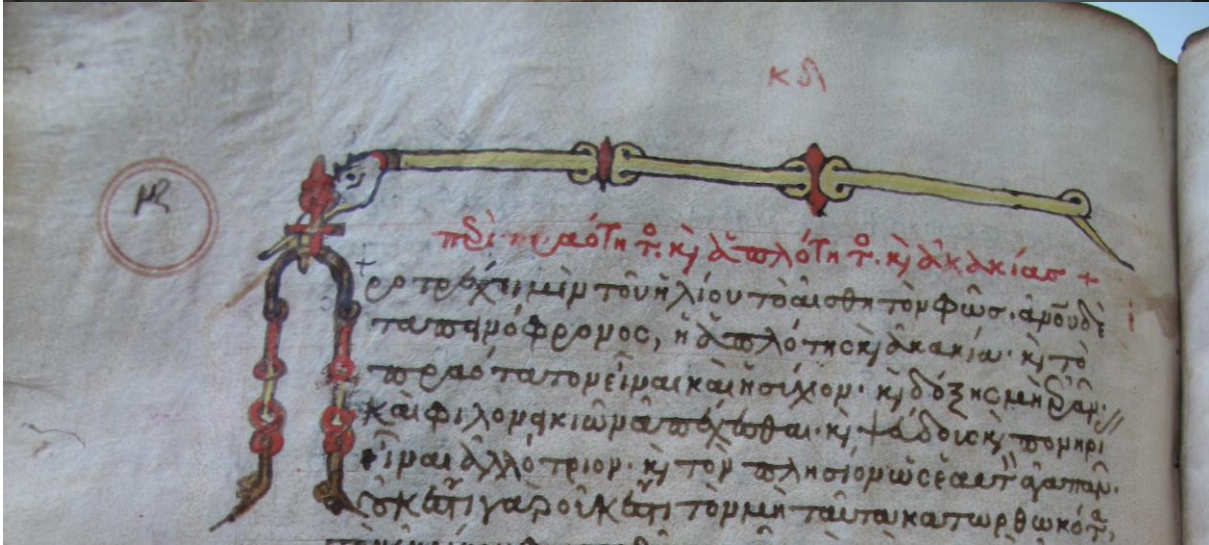 κδ
περὶ πραότητο. κ(αὶ) ἁπλότητο. κ(αὶ) ἀκακίας +
ροτρέχει μὲν τοῦ ἡλίου τὸ αἰσθητὸν φῶς. ἀνου δὲ
ταπεινόφρονος, ἡ ἁπλότης κ(αὶ) ἀκακία. κ(αὶ) τὸ
πραότατον εἶναι καὶ ἡσύχιον. κ(αὶ) δόξης μὴ ἐρᾶν.
καὶ φιλονεικιῶν ἀπέχεσθαι. κ(αὶ) ψεύδους κ(αὶ) πονηρί
εἶναι ἀλλότριον. κ(αὶ) τὸν πλησίον ὡς ἑαυτ ἀγαπᾶν.
γὰρ οὐκ τὸν μὴ ταῦτα κατωρθωκότα,